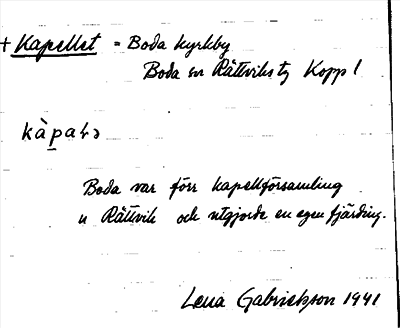 + Kapellet = Boda kyrkby
Boda sn Rättviks tg Kopp l
kàpaḷə
Boda var förr kapellförsamling
u Rättvik och utgjorde en egen fjärding.
Lena Gabrielsson 1941